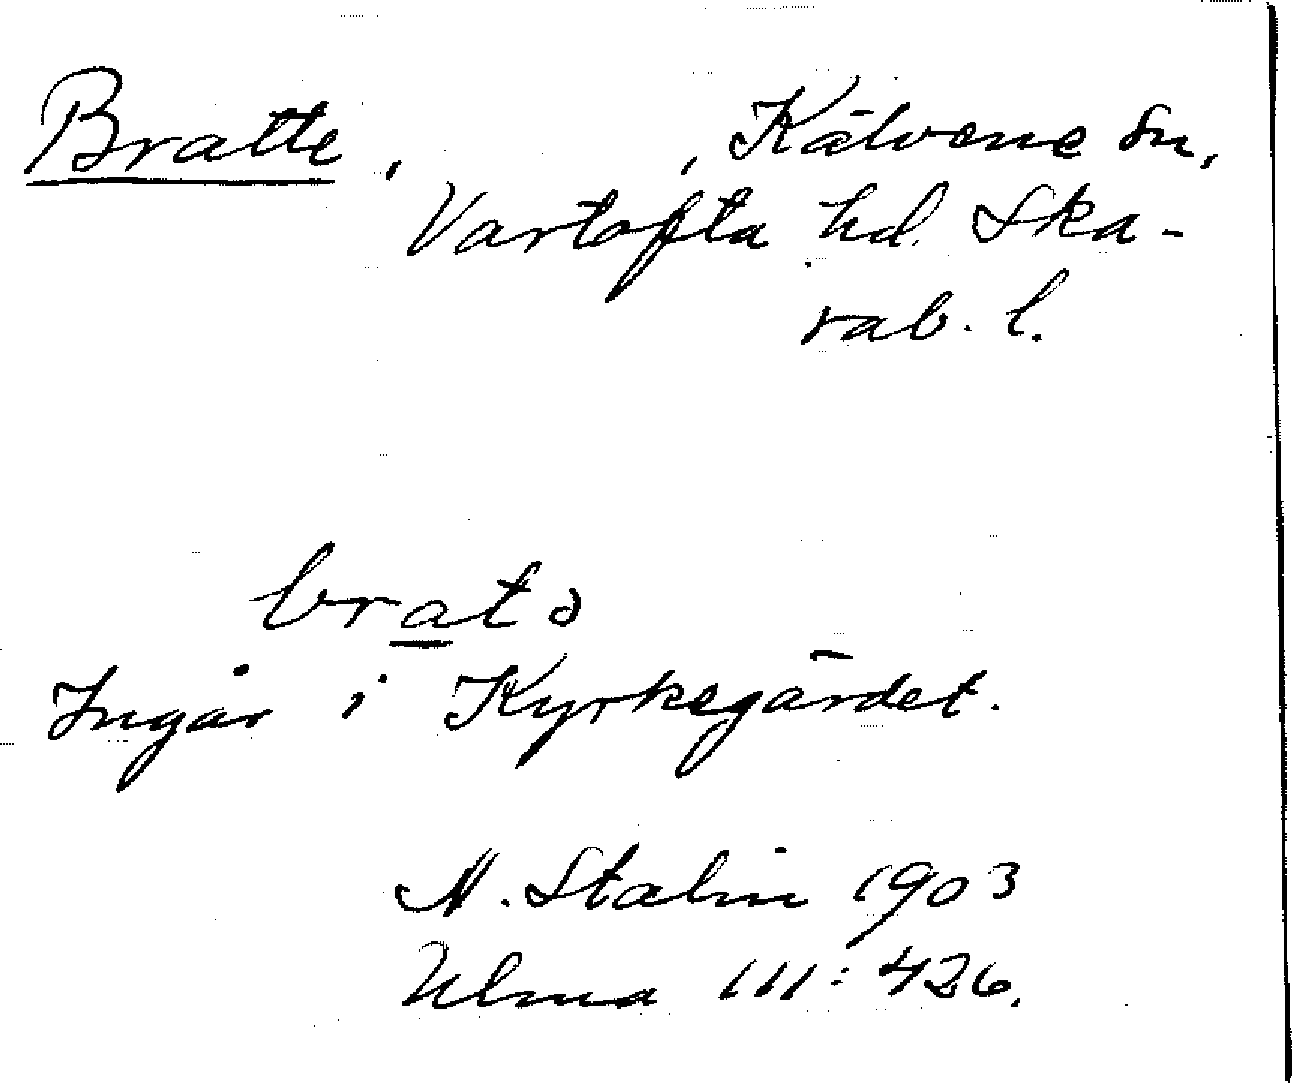 Bratte, , Kälvene sn,
Vartofta hd. Ska-
rab. l.
bratə
Ingår i Kyrkegärdet.
N. Stalin 1903
Ulma 111:426.